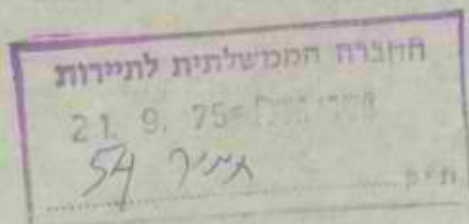 החברה הממשלתית לתיירות
21. 9. 75
54
תיק